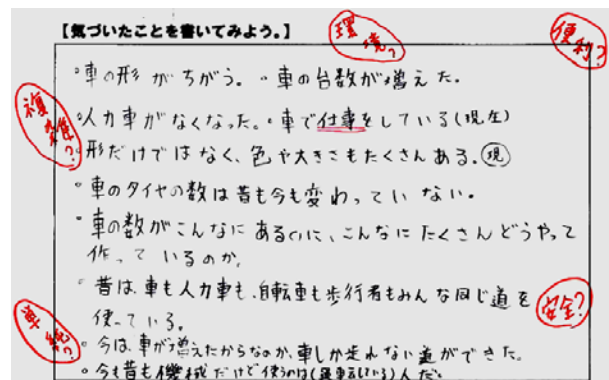 【気づいたことを書いてみよう。】
環境?
便利?
・車の形がちがう。・車の台数が増えた。
複雑?
・人力車がなくなった。・車で仕事をしている(現在)
・形だけではなく、色や大きさもたくさんある。現
・車のタイヤの数は昔も今も変わっていない。
・車の数がこんなにあるのに、こんなにたくさんどうやって
作っているのか。
・昔は、車も人力車も、自転車も歩行者もみんな同じ道を
使っている。
安全?
・今は、車が増えたからなのか、車しか走れない道ができた。
・今も昔も機械だけど使うのは(運転している)人だ。